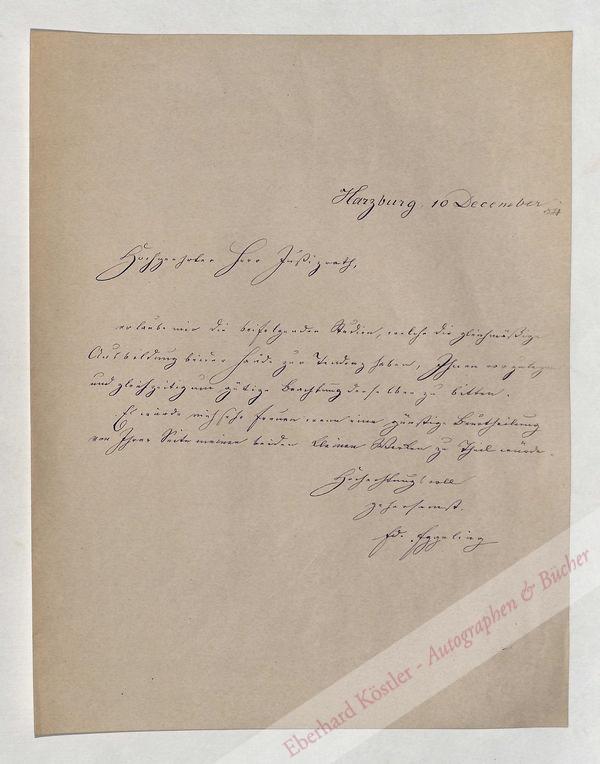 Harzburg, 10 December
Hochgeehrter Herr Justizrath,
erlaube mir die beifolgenden Studien, welche die gleichmäßige
Ausbildung beider Hände zur Tendenz haben, Ihnen vorzulegen
und gleichzeitig um gütige Beachtung derselben zu bitten.
Es würde mich sehr freuen wenn eine günstige Beurtheilung
von Ihrer Seite meinen beiden kleinen Werken zu Theil würde.
Hochachtungsvoll
gehorsamst.
Ed. Eggeling
Eberhard Köstler - Autographen & Bücher